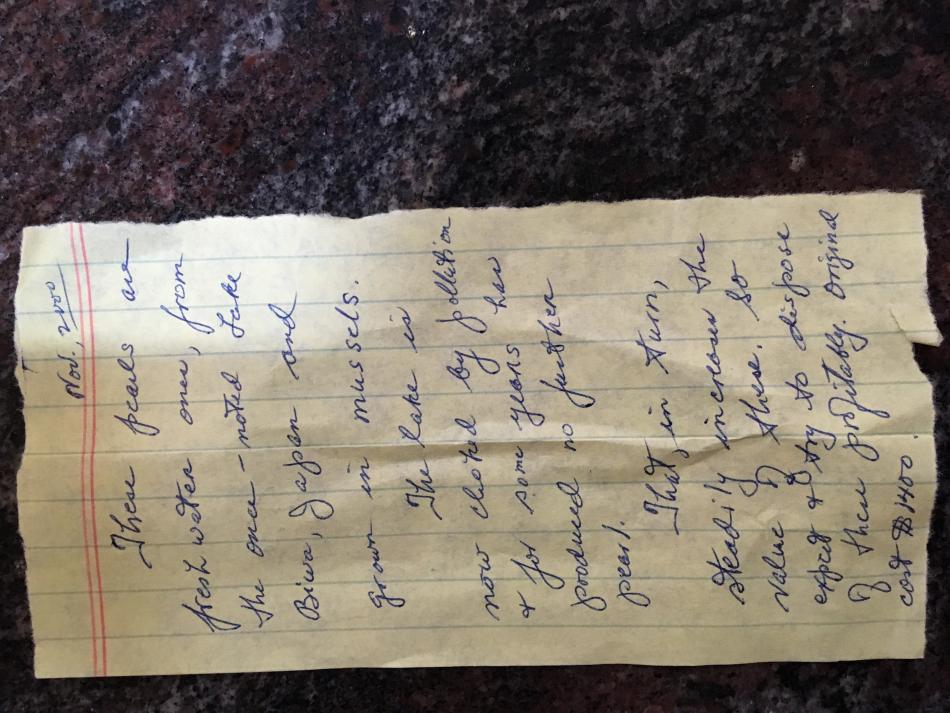 Nov., 2000
These pearls are
fresh water ones, from
the once-noted Lake
Biwa, Japan and
grown in mussels.
The lake is
now choked by pollution
& for some years has
produced no further
pearl.
That, in turn,
steadily increases the
value of these. So
expect & try to dispose
of them profitably. Original
cost $1400.